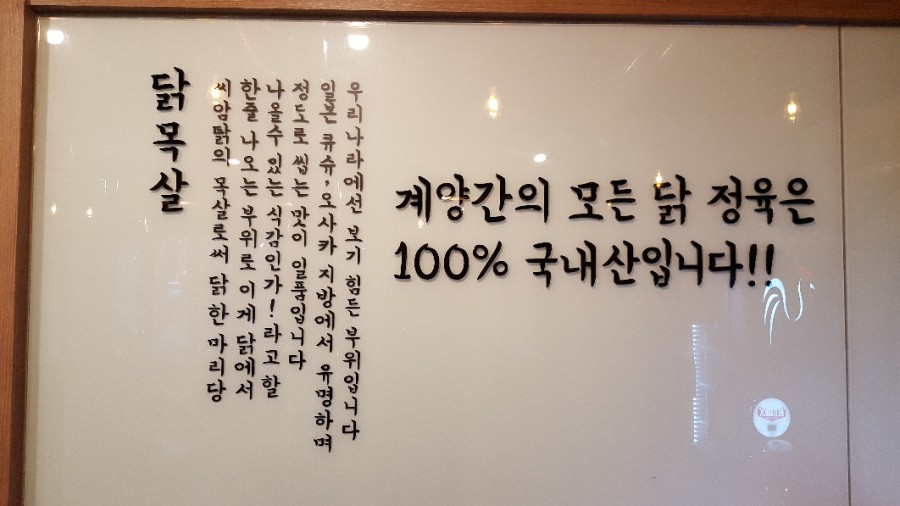 닭목살
씨암탉의 목살로써 닭 한 마리당
한줄 나오는 부위로 이게 닭에서
나올수 있는 식감인가! 라고 할
정도로 씹는 맛이 일품입니다
일본 큐슈,오사카 지방에서 유명하며
우리나라에선 보기 힘든 부위입니다
계양간의 모든 닭 정육은
100% 국내산입니다!!